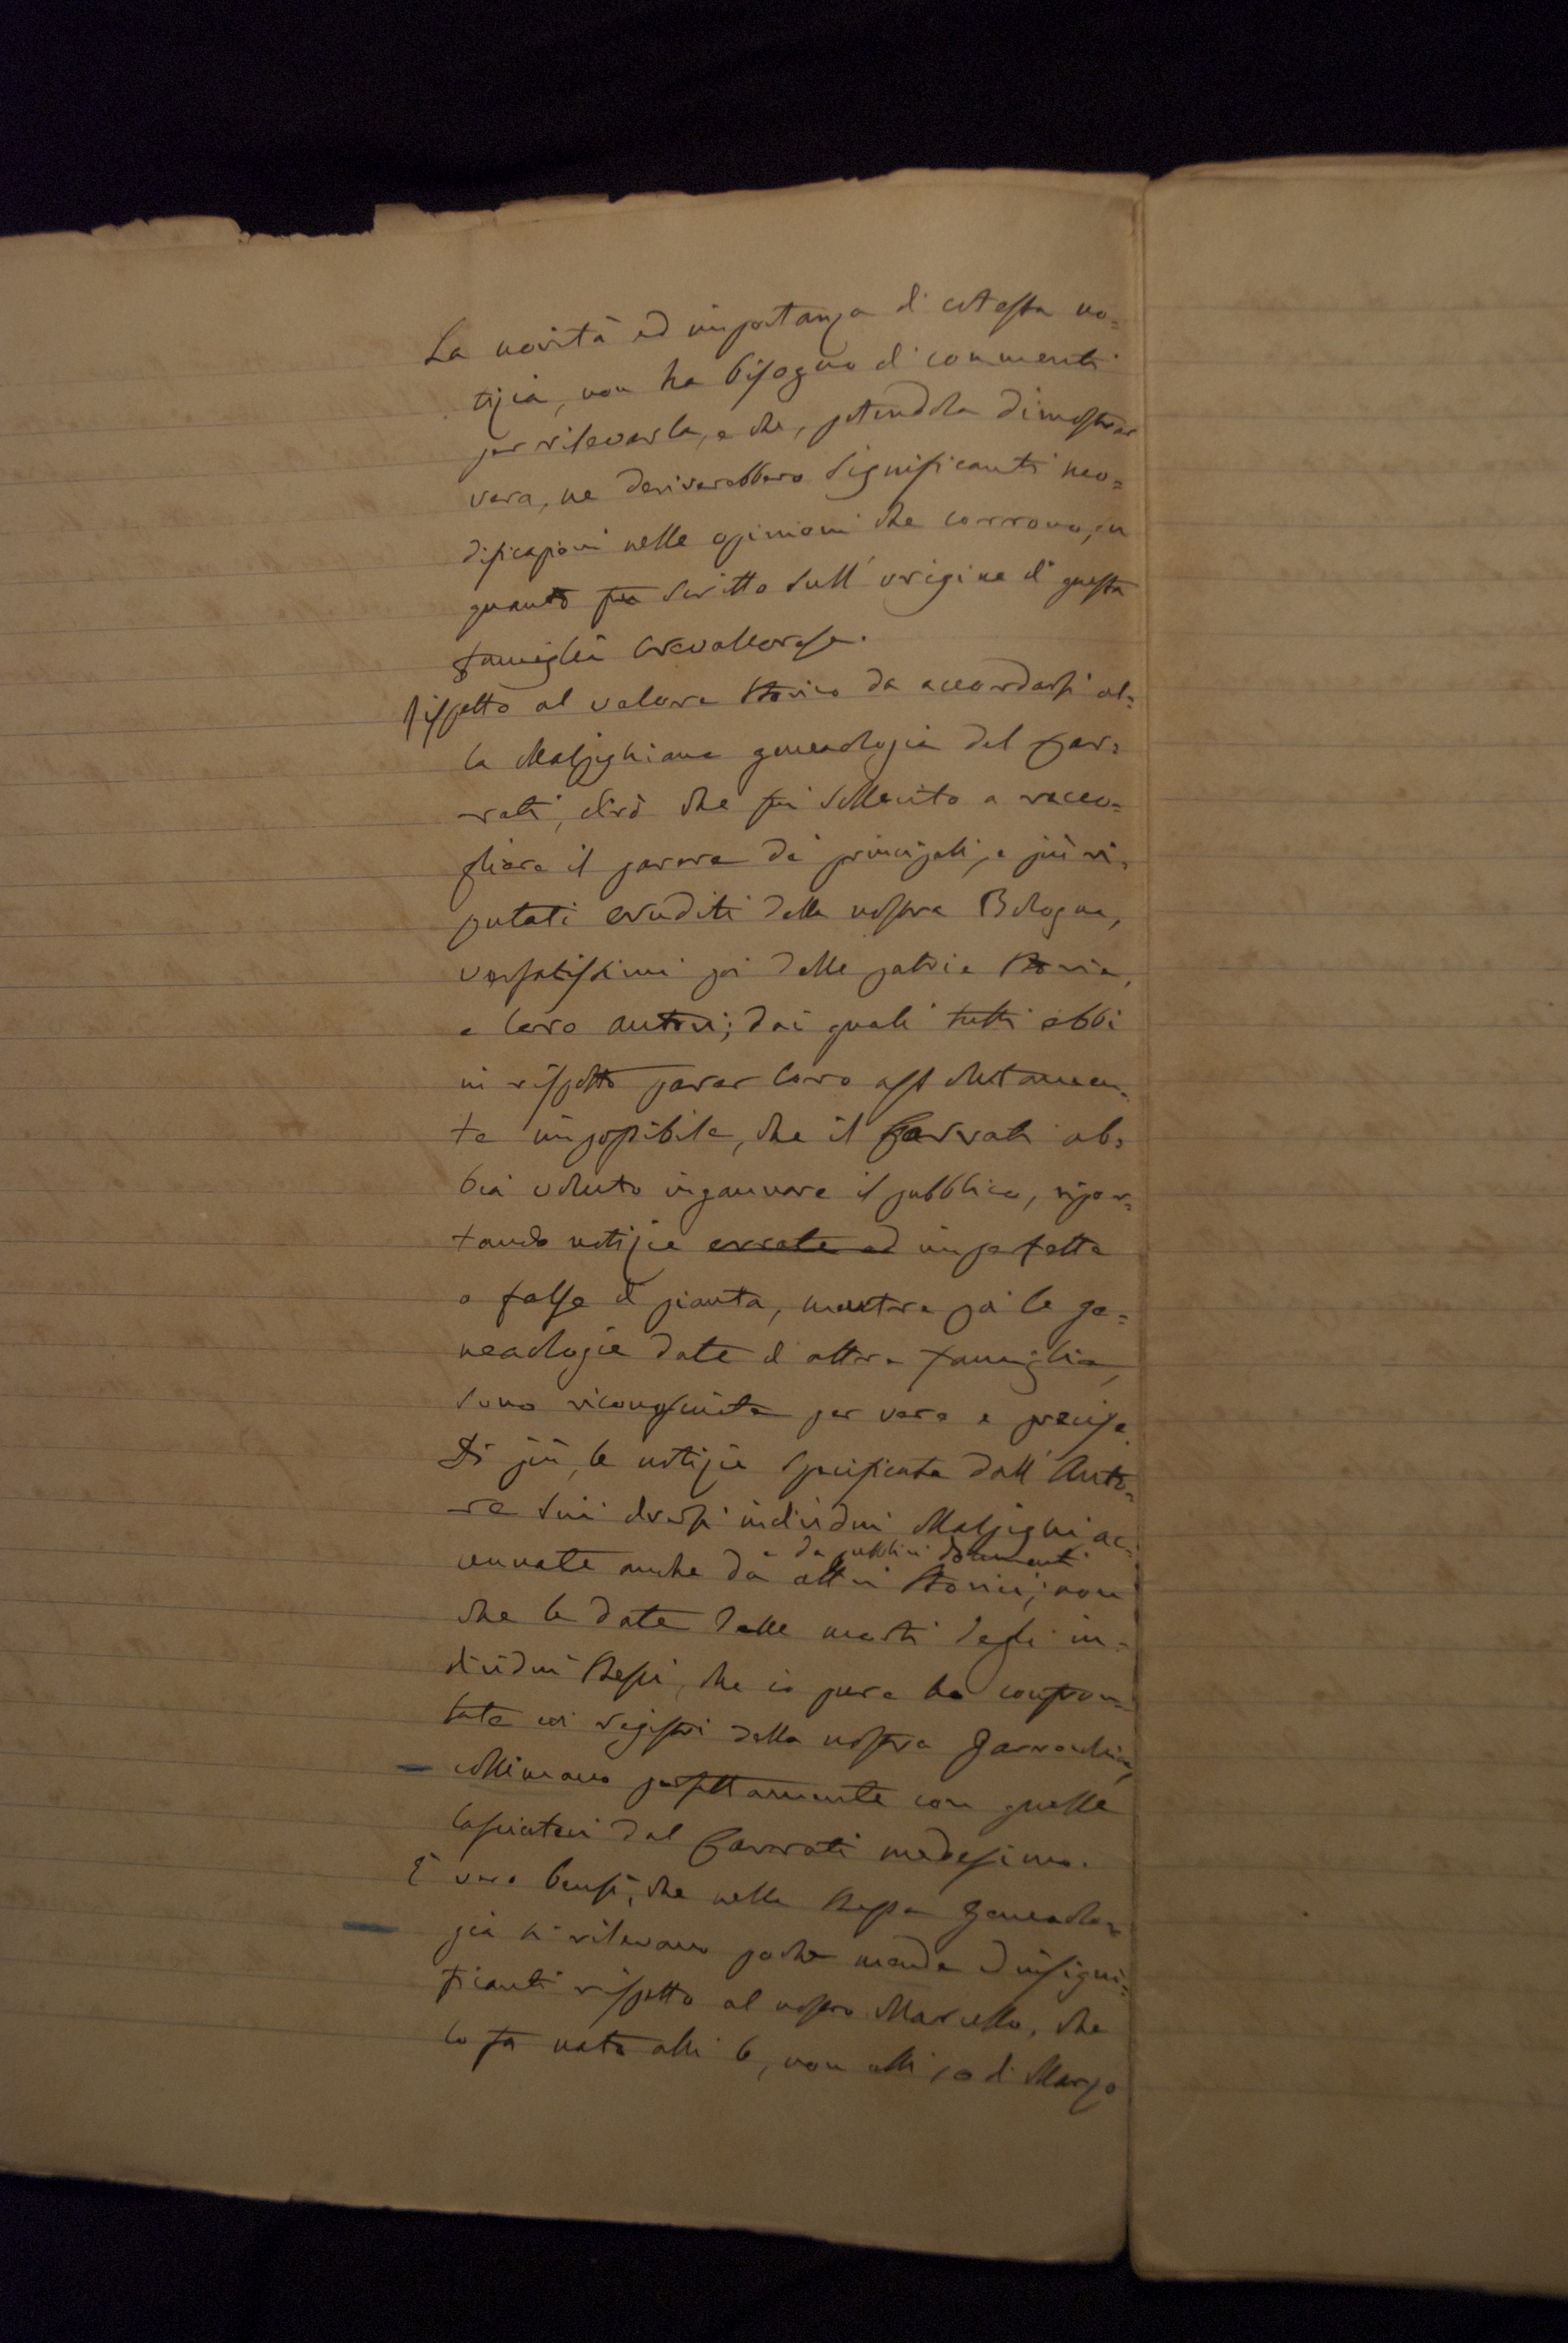 La novità ed importanza di cotesta no=
tizia, non ha bisogno di commenti
per rilevarla, e che, potendola dimostrar
vera, ne deriverebbero significanti mo=
dificazioni nelle opinioni che corrono, in
quanto fu scritto sull'origine di questa
famiglia Crevalcorese.
Rispetto al valore storico da accordarsi al=
la Malpighiana genealogia del Car=
rati, dirò che fui sollecito a racco=
gliere il parere de' principali, e più ri=
putati eruditi della nostra Bologna,
versatissimi poi delle patrie storie,
e loro autori; dai quali tutti ebbi
in rispetto parer loro assolutamen=
te impossibile, che il Carrati ab=
bia voluto ingannare il pubblico, ripor=
tando notizie errate ed imperfette
o false di pianta, mentre poi le ge=
nealogie date d'altre famiglie,
sono riconosciute per vere e precise.
Di più, le notizie specificate dall'Auto=
re sui diversi individui Malpighi ac=
da pubblici documenti
cennate anche da altri storici; non
che le date delle morti degli in=
dividui stessi, che io pure ho confron=
tate coi registri della nostra Parrochia,
collimano perfettamente con quelle
lasciateci dal Carrati medesimo.
È vero bensì, che nella stessa genealo=
gia si rilevano poche mende ed insigni=
ficanti rispetto al nostro Marcello, che
lo fa nato alli 6, non alli 10 di Marzo